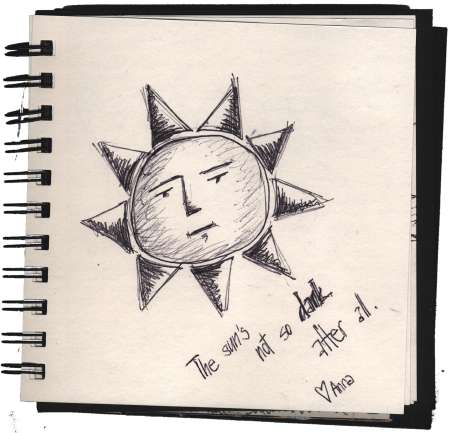 The sun's
not so dark
after all.
♡Anna